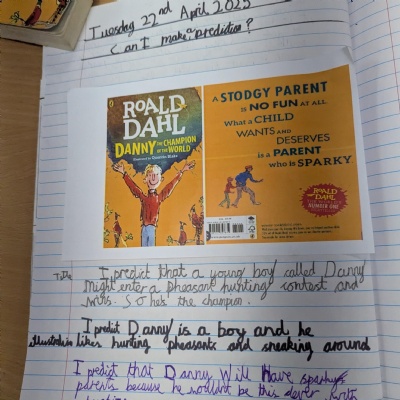 Tuesday 22nd April 2025
Can I make a prediction?
ROALD
DAHL
DANNY THE CHAMPION
OF THE WORLD
Illustrated by Quentin Blake
A STODGY PARENT
IS NO FUN AT ALL
What a CHILD
WANTS AND
DESERVES
is a PARENT
who is SPARKY
ROALD
DAHL
NUMBER ONE
I predict that a young boy called Danny
might enter a pheasant hunting contest and
wins. So he's the champion.
I predit Danny is a boy and he
likes hunting pheasants and sneaking around
I predict that Danny Will Have sparky
parents because he wouldn't be this clever with